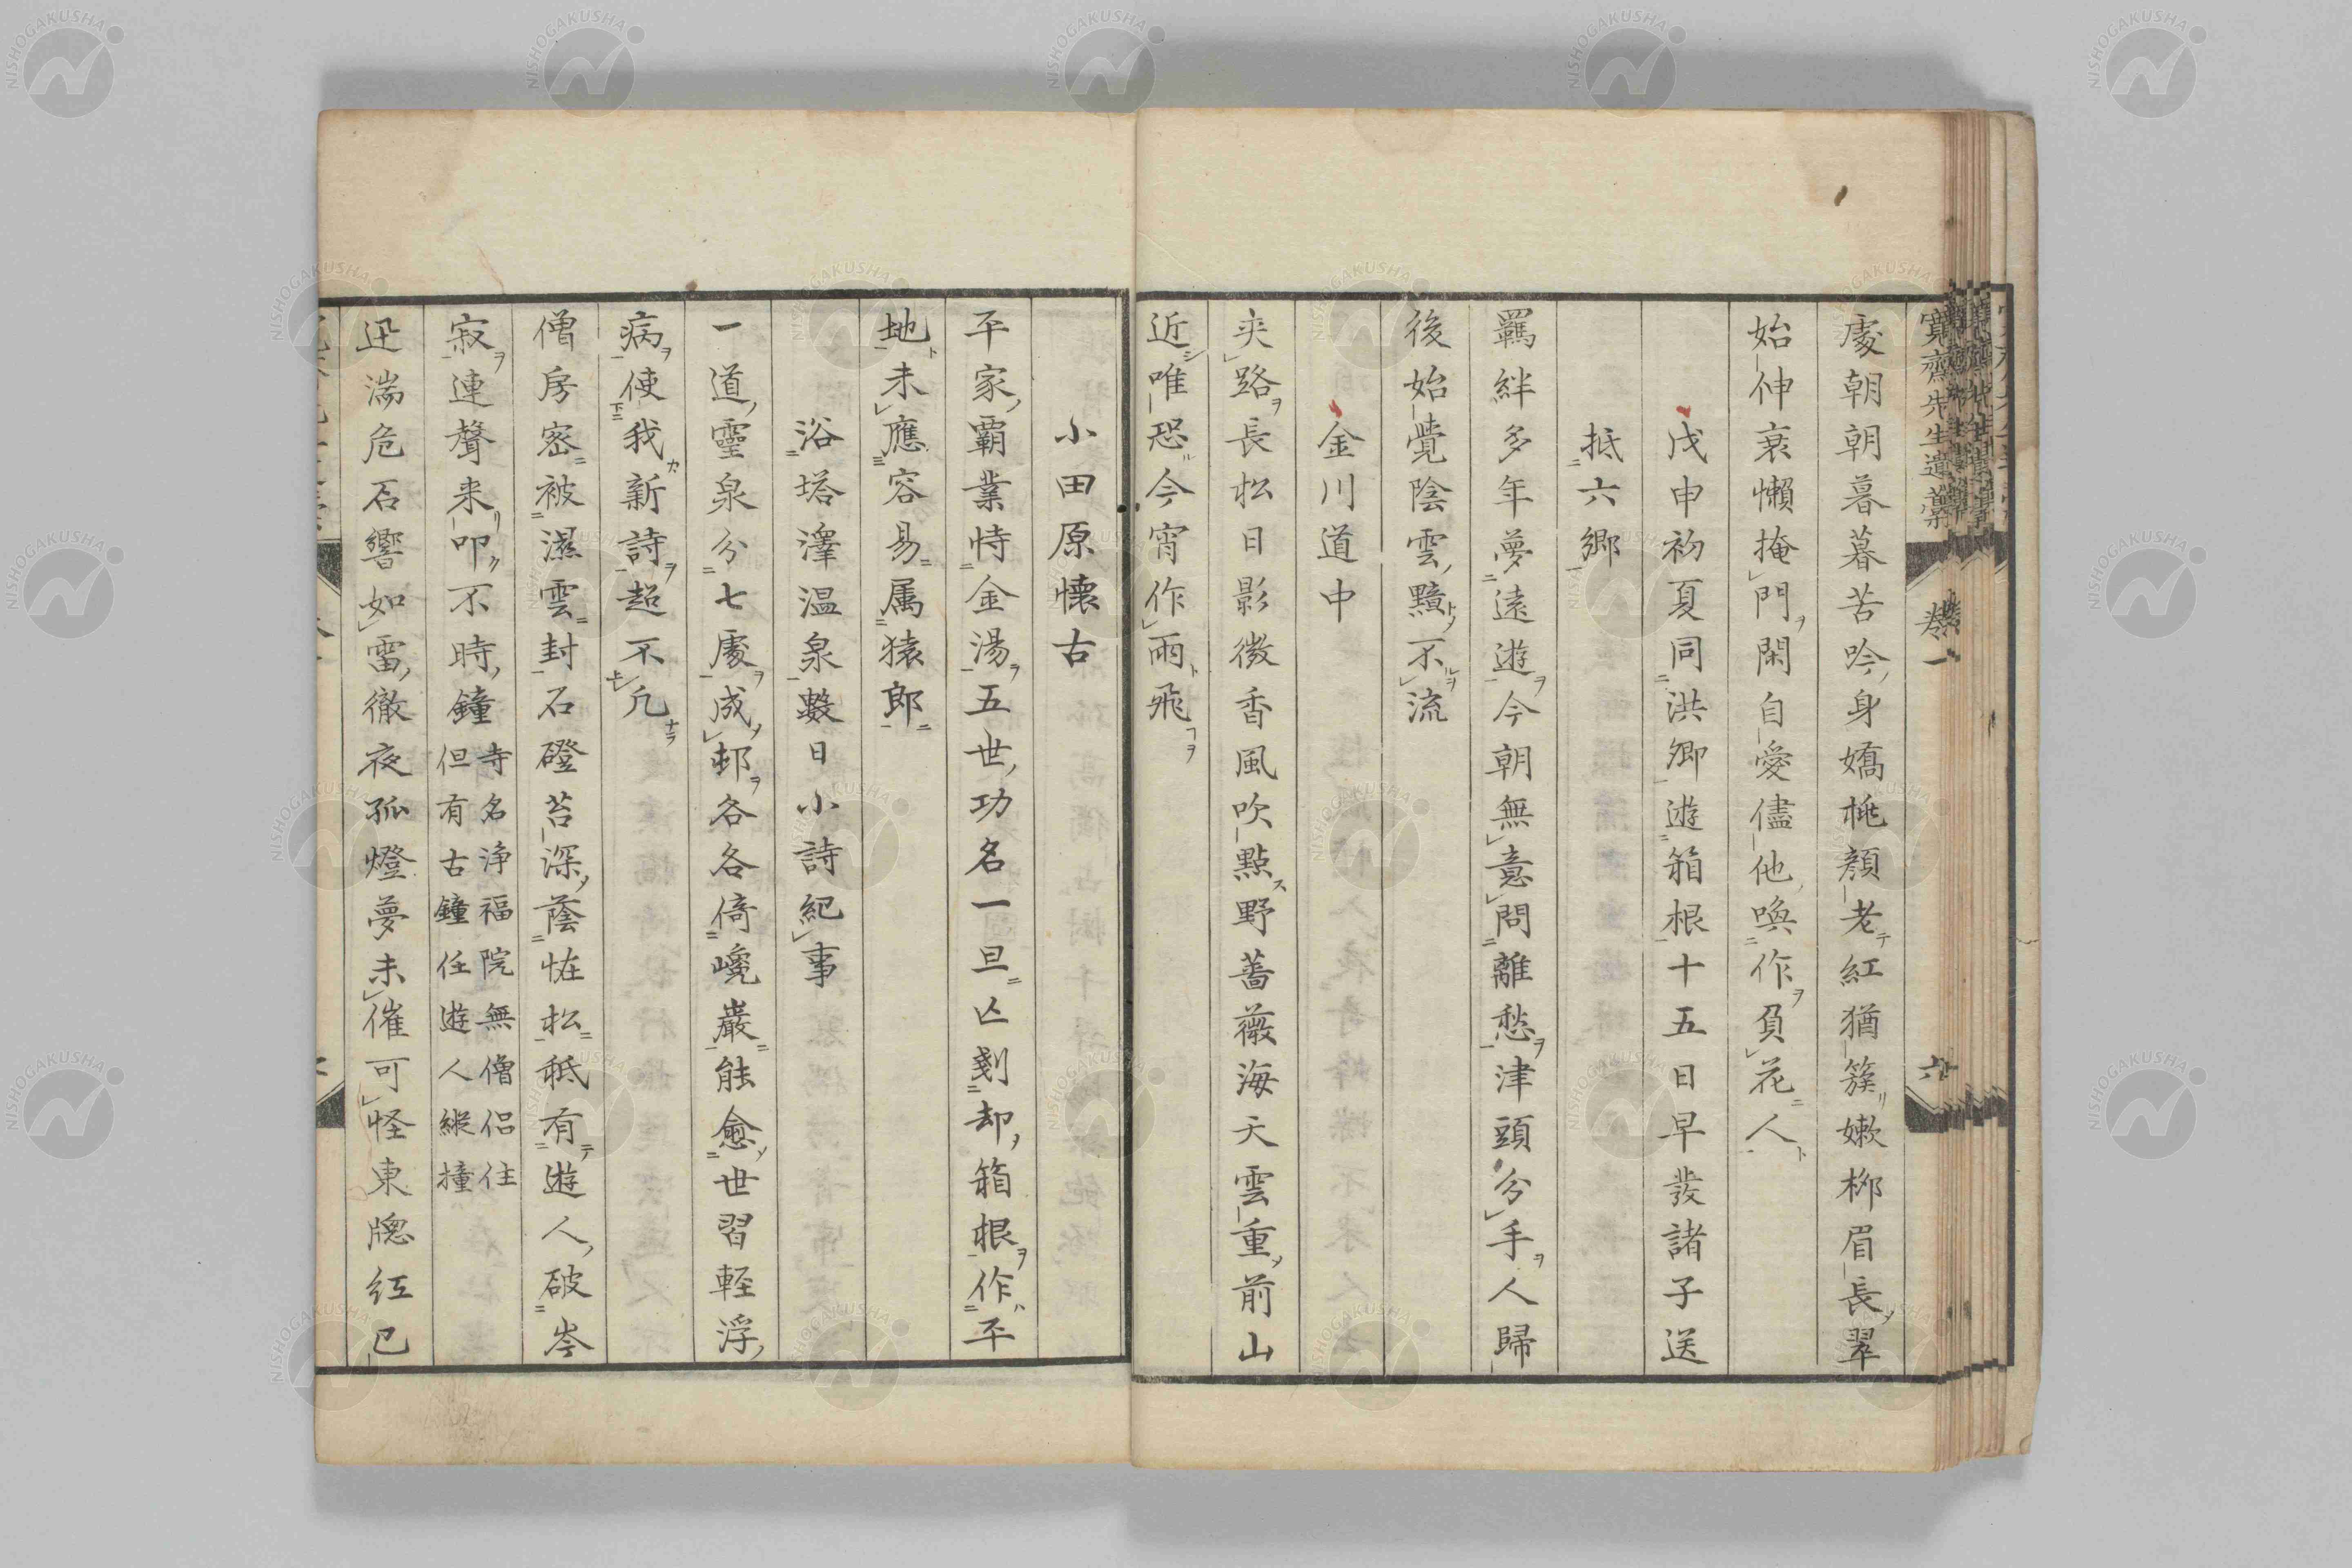 寬齋先生遺藁 卷一 六
處朝朝暮暮苦吟身嬌桃顏老紅猶簇嫩柳眉長翠
始伸衰懶掩門閑自愛儘他喚作負花人
戊申初夏同洪卿遊箱根十五日早發諸子送
抵六鄉
羈絆多年夢遠遊今朝無意問離愁津頭分手人歸
後始覺陰雲黯不流
金川道中
夾路長松日影微香風吹點野薔薇海天雲重前山
近唯恐今宵作雨飛
小田原懷古
平家霸業恃金湯五世功名一旦亡剗却箱根作平
地未應容易属猿郎
浴塔澤温泉數日小詩紀事
一道靈泉分七處成邨各各倚巉巖能愈世習輕浮
病使我新詩超不凡
僧房密被濕雲封石磴苔深蔭怪松秪有遊人破岑
寂連聲来叩不時鐘 寺名浄福院無僧侶住
但有古鐘任遊人縱撞
迅湍危石響如雷徹夜孤燈夢未催可怪東牕红已
NISHOGAKUSHA